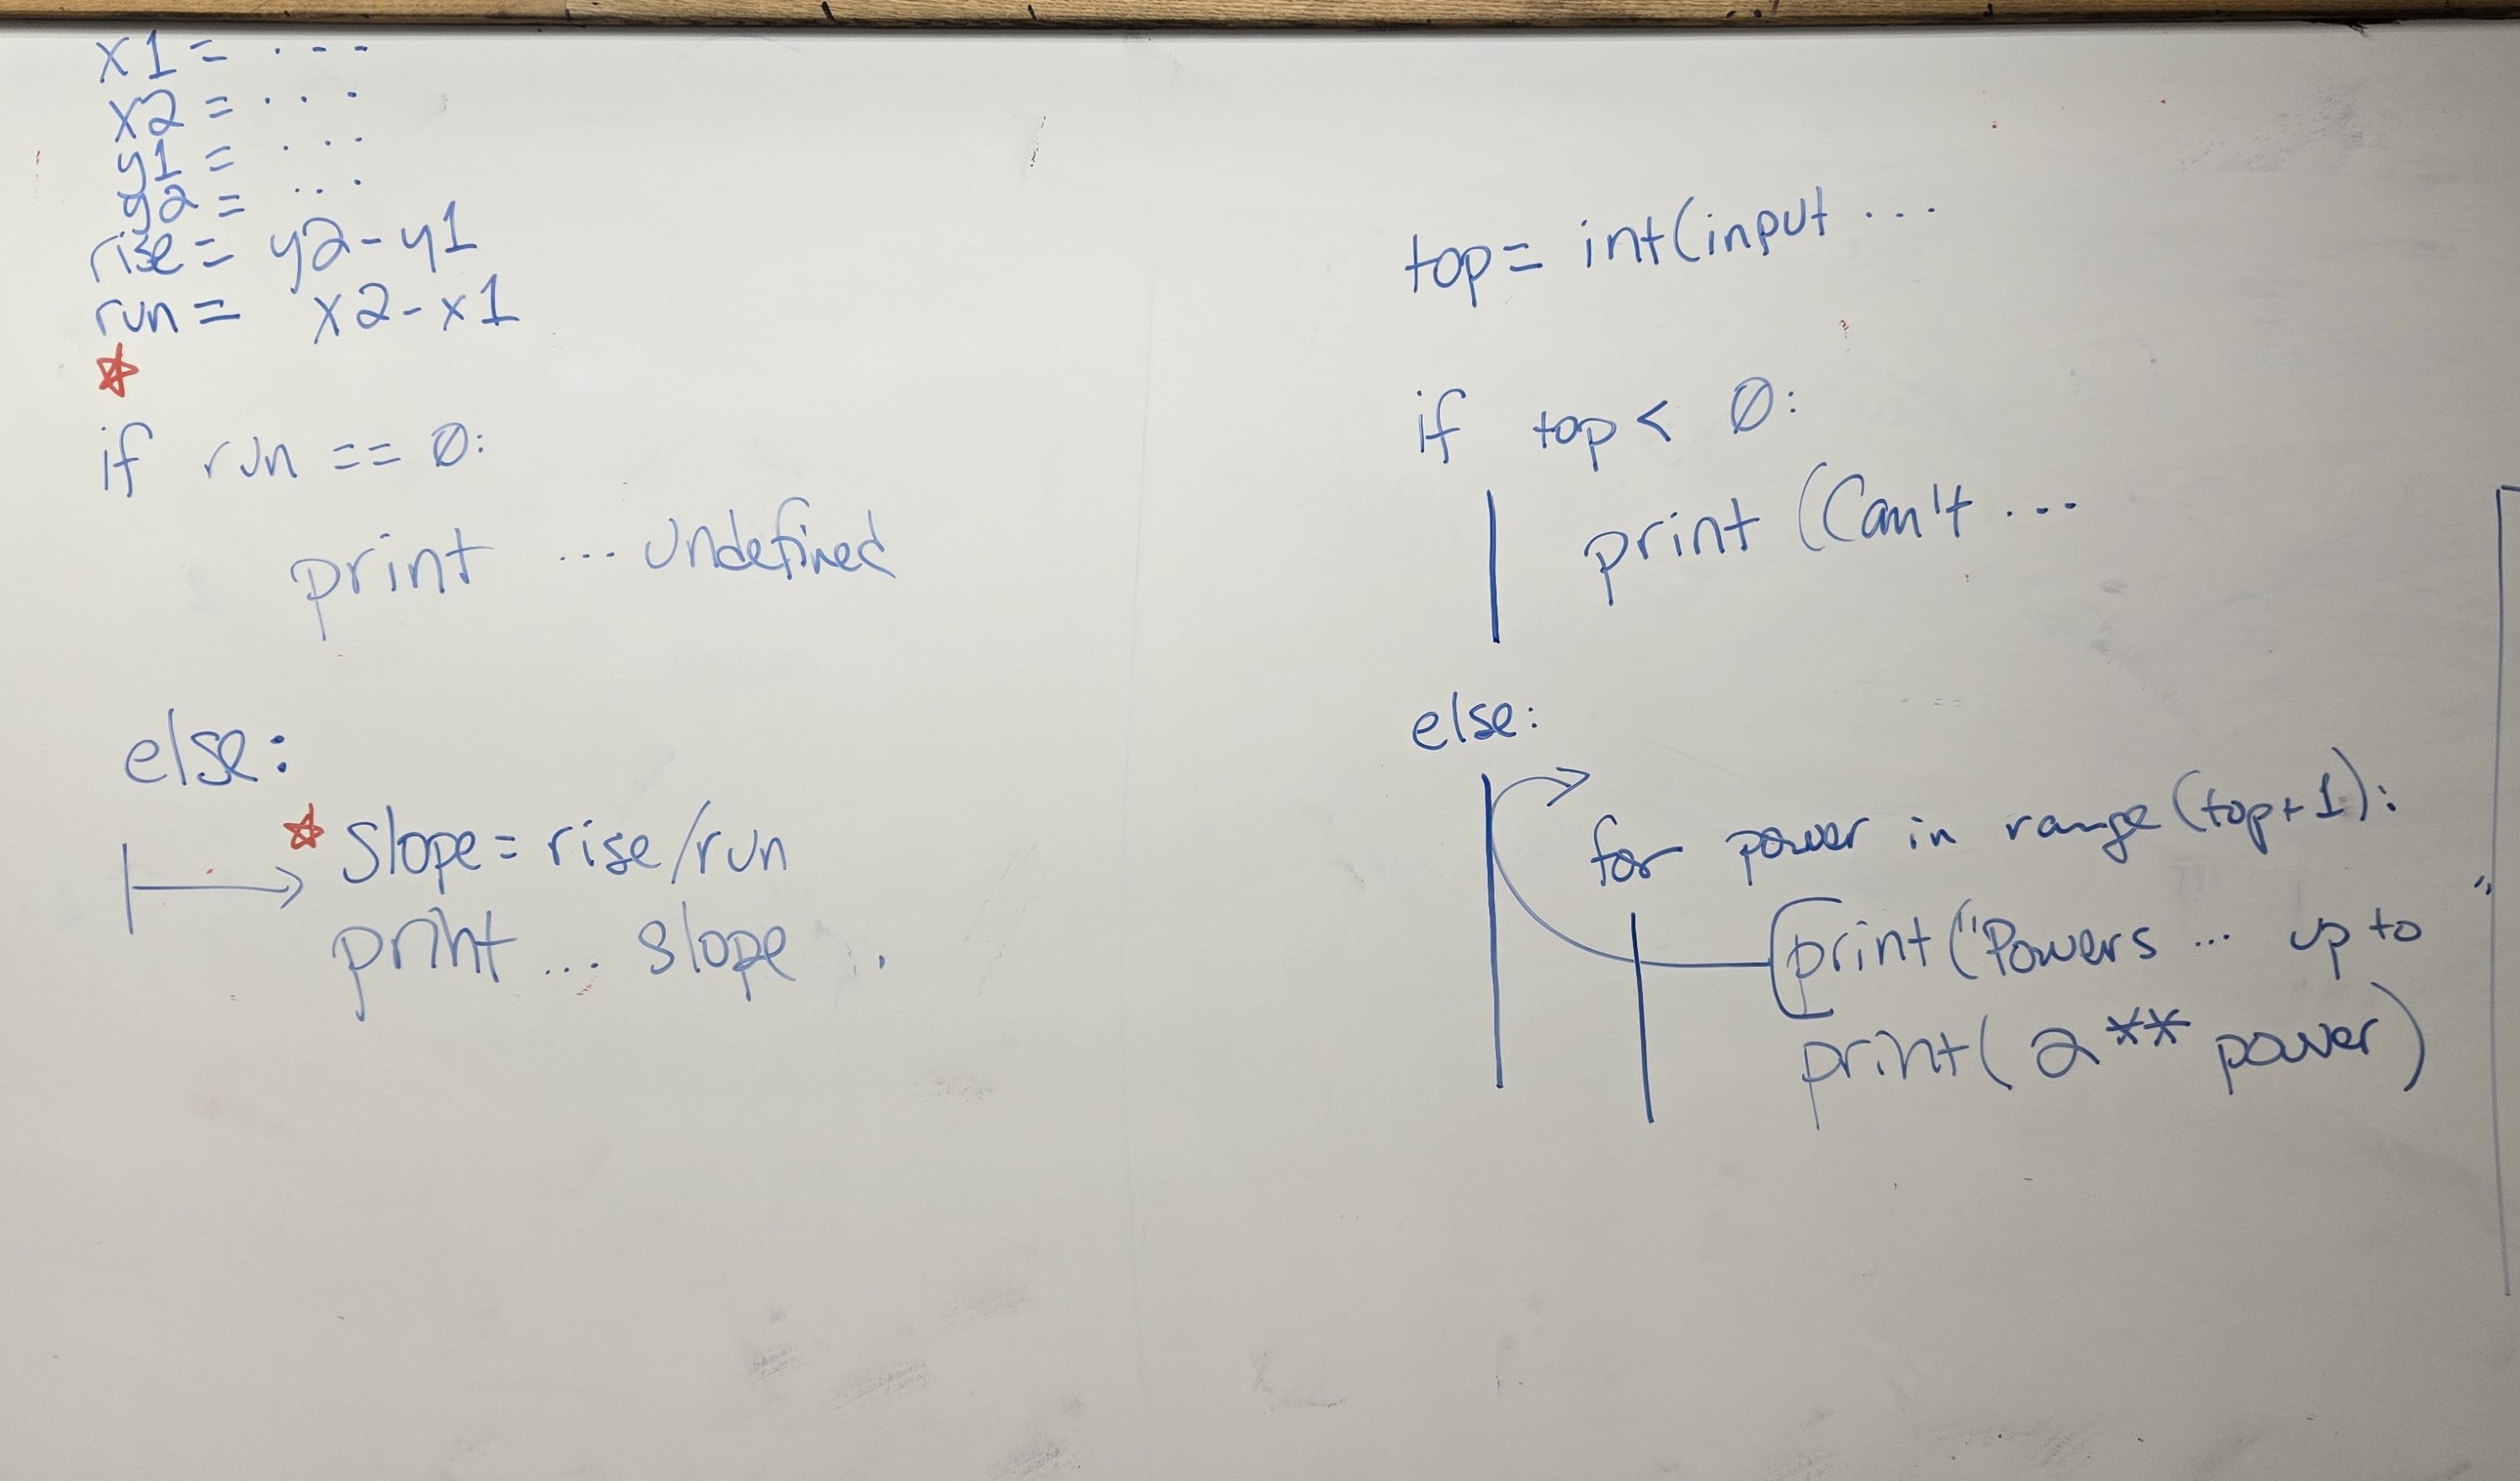 x1 = ...
x2 = ...
y1 = ...
y2 = ...
rise = y2-y1
run = x2-x1
if run == 0:
print ... undefined
else:
slope = rise/run
print ... slope .
top = int(input ....
if top < 0:
print (Can't ...
else:
for power in range(top+1):
print("Powers ... up to "
print(2**power)